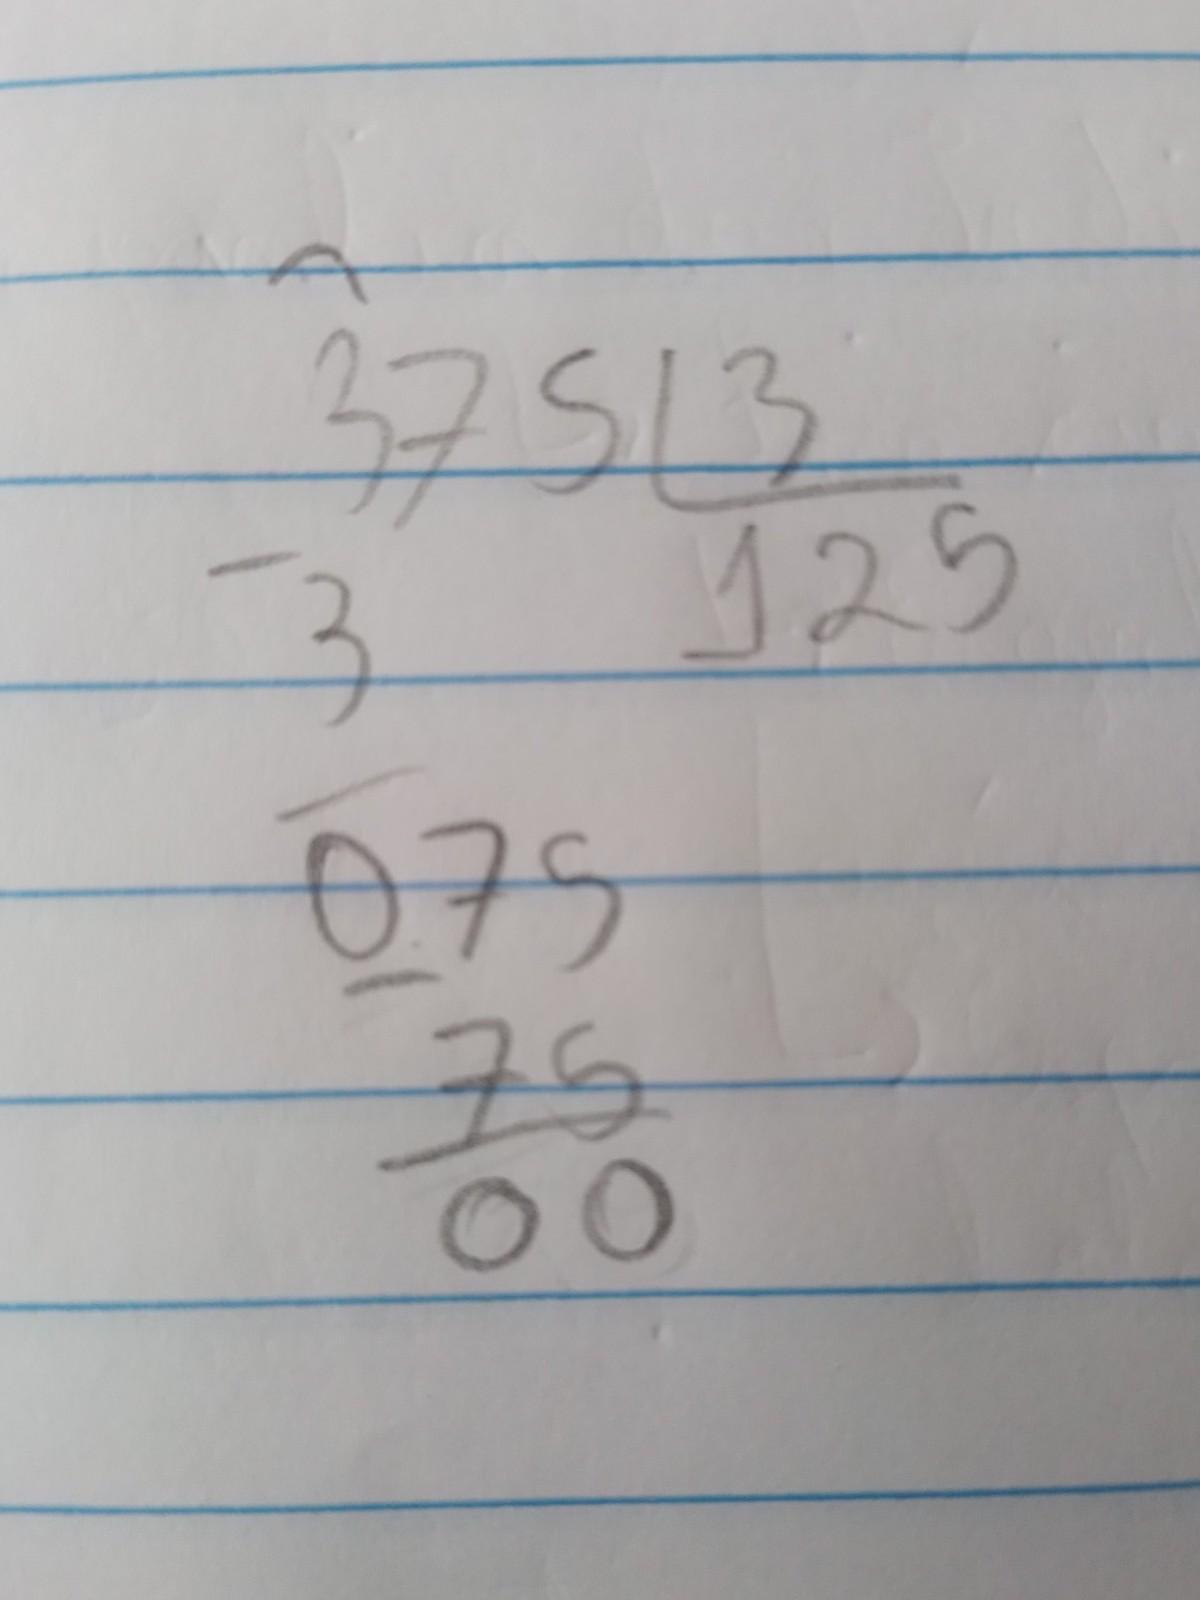 375 3
- 3 125
075
- 75
00